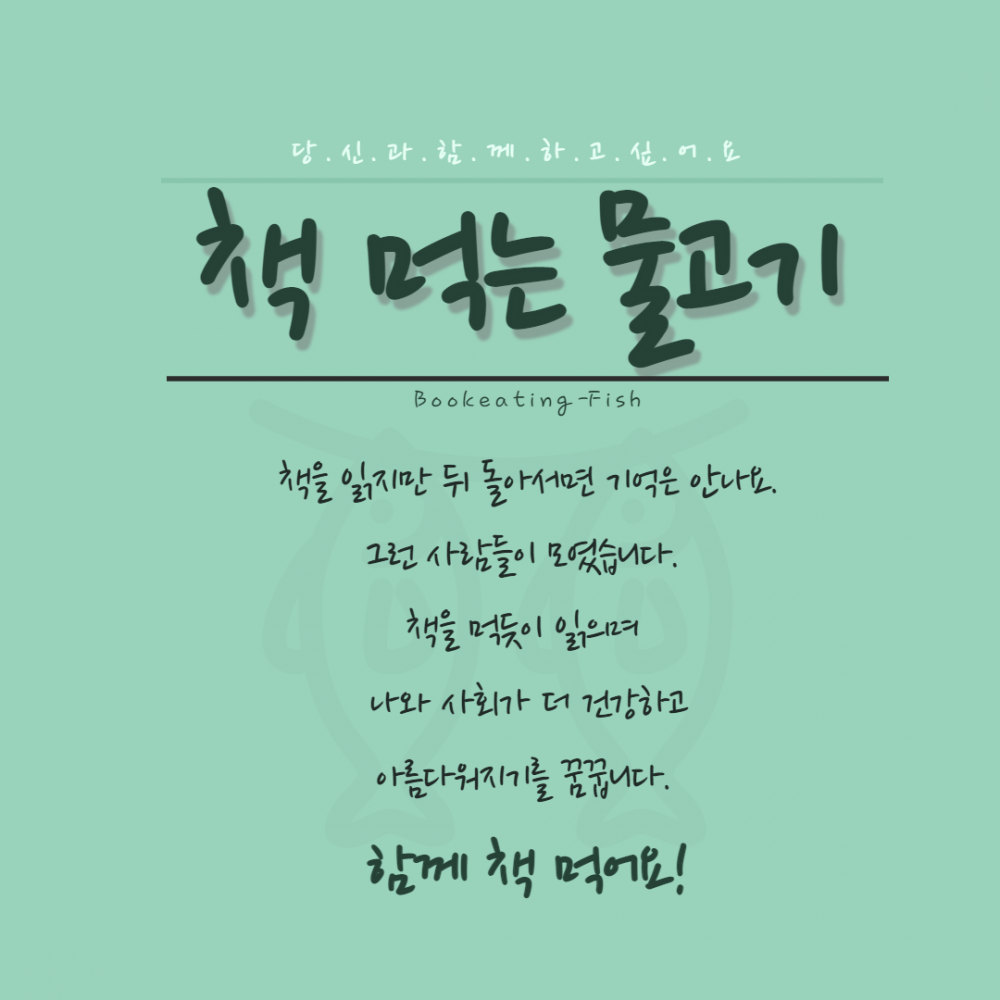 당.신.과.함.께.하.고.싶.어.요
책 먹는 물고기
Bookeating-Fish
책을 읽지만 뒤 돌아서면 기억은 안나요.
그런 사람들이 모였습니다.
책을 먹듯이 읽으며
나와 사회가 더 건강하고
아름다워지기를 꿈꿉니다.
함께 책 먹어요!